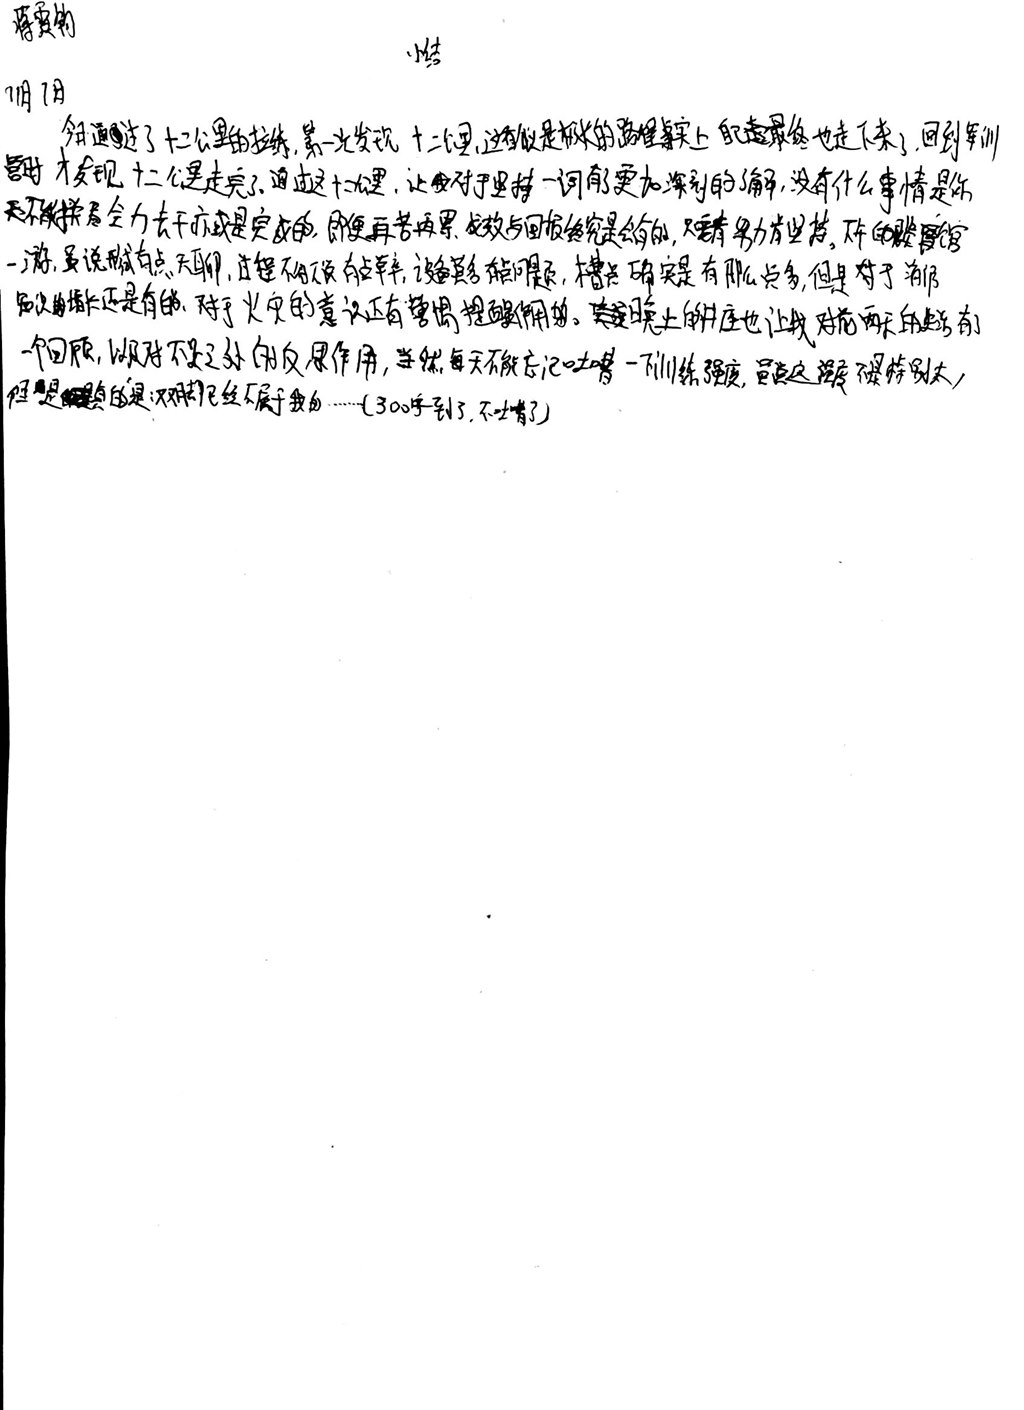 小结
11月7日
今日通过了十二公里的拉练,第一次发现十二公里,这看似是极长的路程事实上 最终也走下来了,回到军训
营时才发现十二公里走完了。通过这十二公里,让我对于坚持一词有了更加深刻的了解,没有什么事情是你
不能拼尽全力去干亦或是完成的,即便再苦再累,成效与回报终究是会有的,只要有努力肯坚持。下午的 馆
一游,虽说形式有点尬聊,过程不得不说有点草率,设备蛮多有点问题,槽点确实是有那么点多,但是对于消防
知识的增长还是有的,对于火灾的意识还有警惕提醒作用的。 晚上的讲座也让我对前两天的生活有
一个回顾,以及对不足之处的反思作用,当然每天不能忘记吐槽一下训练强度,虽然这强度不是特别大,
但是 的是:双脚已经不属于我的……(300字到了,不吐槽了)